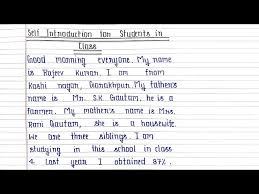 Self Introduction for Students in
Class
Good morning everyone. My name
is Rajeev Kumar. I am from
Kashi nagar, Gorakhpur. My father's
name is Mr. S.K. Gautam. he is a
farmer. My mother's name is Mrs.
Rani Gautam, she is a housewife.
We are three siblings. I am
studying in this school in class
4. Last year I obtained 87%.